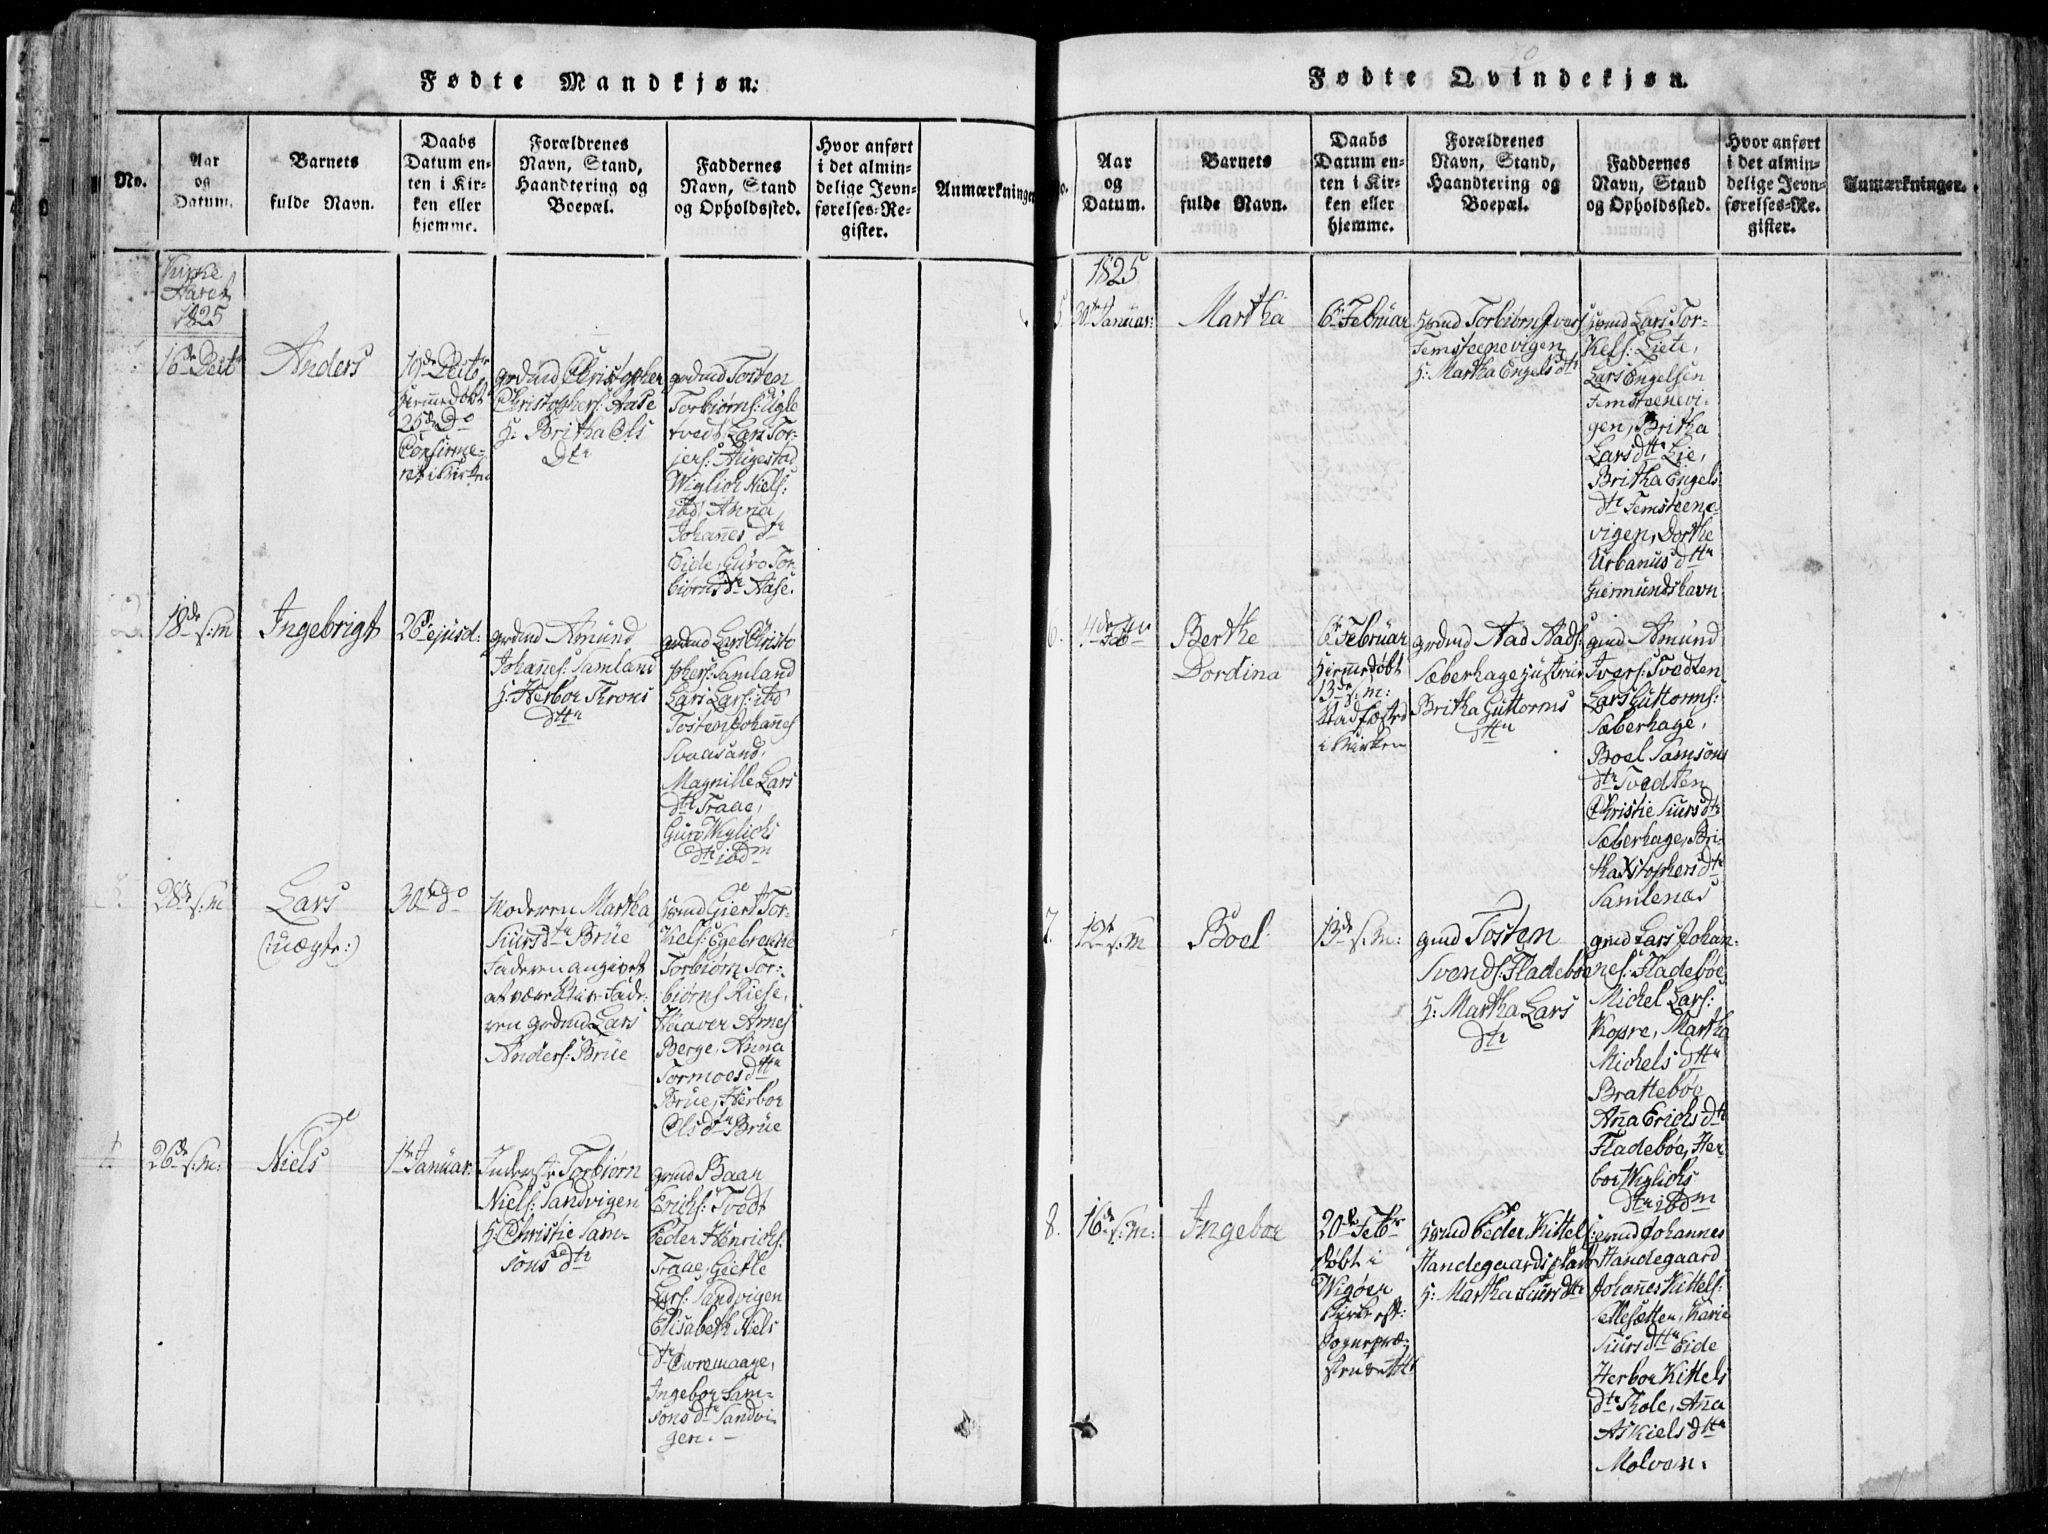 Fødte Mandkjøn:
No.
Aar
og
Datum.
Barnets
fulde Navn.
Daabs
Datum en-
ten i Kir-
ken eller
hjemme.
Forældrenes
Navn, Stand,
Haandtering og
Boepæl.
Faddernes
Navn, Stand
og Opholdssted.
Hvor anført
i det almin-
delige Jevn-
førelses-Re-
gister.
Anmærkninger
Kirke
Aaret
1825
16de
Anders
19de
hiemmedøbt
25de Do
Confirme-
ret i Kirken
grdmd Christopher
Christophers: Aase
H: Britha Ols
Dtr
grdmd Tosten
Torbiørns: Ygle
tvedt, Lars Tor-
jers: Augestad
Wiglich Niels:
ibd, Anna
Johannes dtr
Eide, Guro Tor-
biørns dtr Aase.
2.
18de s:m
Ingebrigt
26de ejusd:
grdmd Amund
Johannes: Samland
H: Herbor Trons
dttr
grdmd Lars Christo
phers: Samland
Lars Lars: ibd
Tosten Johannes
Svaasand,
Magnille Lars
dtr Traae,
Guro Wiglichs
dtr ibdm
3.
28de s:m
Lars
(:uægte:)
30te do
Moderen Martha
Siurs dtr Brüe
Faderen angivet
at være
ren grdmd Lars
Anders: Brüe
Giert Tor-
Kels: Egebrekke
Torbiørn Tor-
biørns Kiese,
Haaver Arnes
Berge, Anna
Tormoes dttr
Brüe, Herbor
Ols dtr Brüe
4
26de s:m:
Niels
1te Januar:
Inderste Torbiørn
Niels: Sandvigen
H: Christie Sam-
sons dtr
grmd Baar
Erichs: Tvedt
Peder Henrichs:
Traae, Giertle
Lars: Sandvigen
Elisabeth Niels
dtr Øvremaage,
Ingebor Sam-
sons dtr Sandvi
gen. –
Fødte Qvindekjøn.
No.
Aar
og
Datum.
Barnets
fulde Navn.
Daabs
Datum en-
ten i Kir-
ken eller
hjemme.
Forældrenes
Navn, Stand,
Haandtering og
Boepæl.
Faddernes
Navn, Stand
og Opholdssted.
Hvor anført
i det almin-
delige Jevn-
førelses-Re-
gister.
Anmærkninger.
1825
5.
Januar:
Martha
6te Februar
Torbiørn Ivers
Femsteenevigen
H: Martha Engels dtr
Lars Tor-
Kels: Liete,
Lars Engelsen
Femsteenevi-
gen, Britha
Lars dttr Lie,
Britha Engels
dtr Femsteene-
vigen, Dorthe
Urbanus dttr
Giermundshavn
6.
4de
Berthe
Dordina
6te Februar
hiemmedøbt
13de s:m:
Stadfæsted
i Kirken
grdmd Aad Aads:
Sæberhage Hustrue
Britha Guttorms
dttr
gmd Amund
Ivers: Tvedten
Lars Guttorms:
Sæberhage,
Boel Samsons
dtr Tvedten
Christie Siurs dtr
Sæberhage, Bri-
tha Xstophers dtr
Samlenæs
7.
12te s:m
Boel
13de s:m:
gmd Tosten
Svends: Fladebøe
H: Martha Lars
dtr
gmd Lars Johan-
nes: Fladebøe,
Michel Lars:
Kopre, Martha
Michels dttr
Brattebøe
Ana Erichs dtr
Fladebøe, Her-
bor Wiglichs
dtr ibdm
8.
16de s:m:
Ingebor
20de Febr
døbt i
Wigøer
Kirke
Sognepræ-
Peder Kittels:
Handegaards plads
H: Martha Siurs dtr
grmd Johannes
Handegaard
Johannes Kittels:
Sellesætten, Karie
Siurs dttr Eide
Herbor Kittels
dtr Thole, Ana
Askiels dttr
Molven.